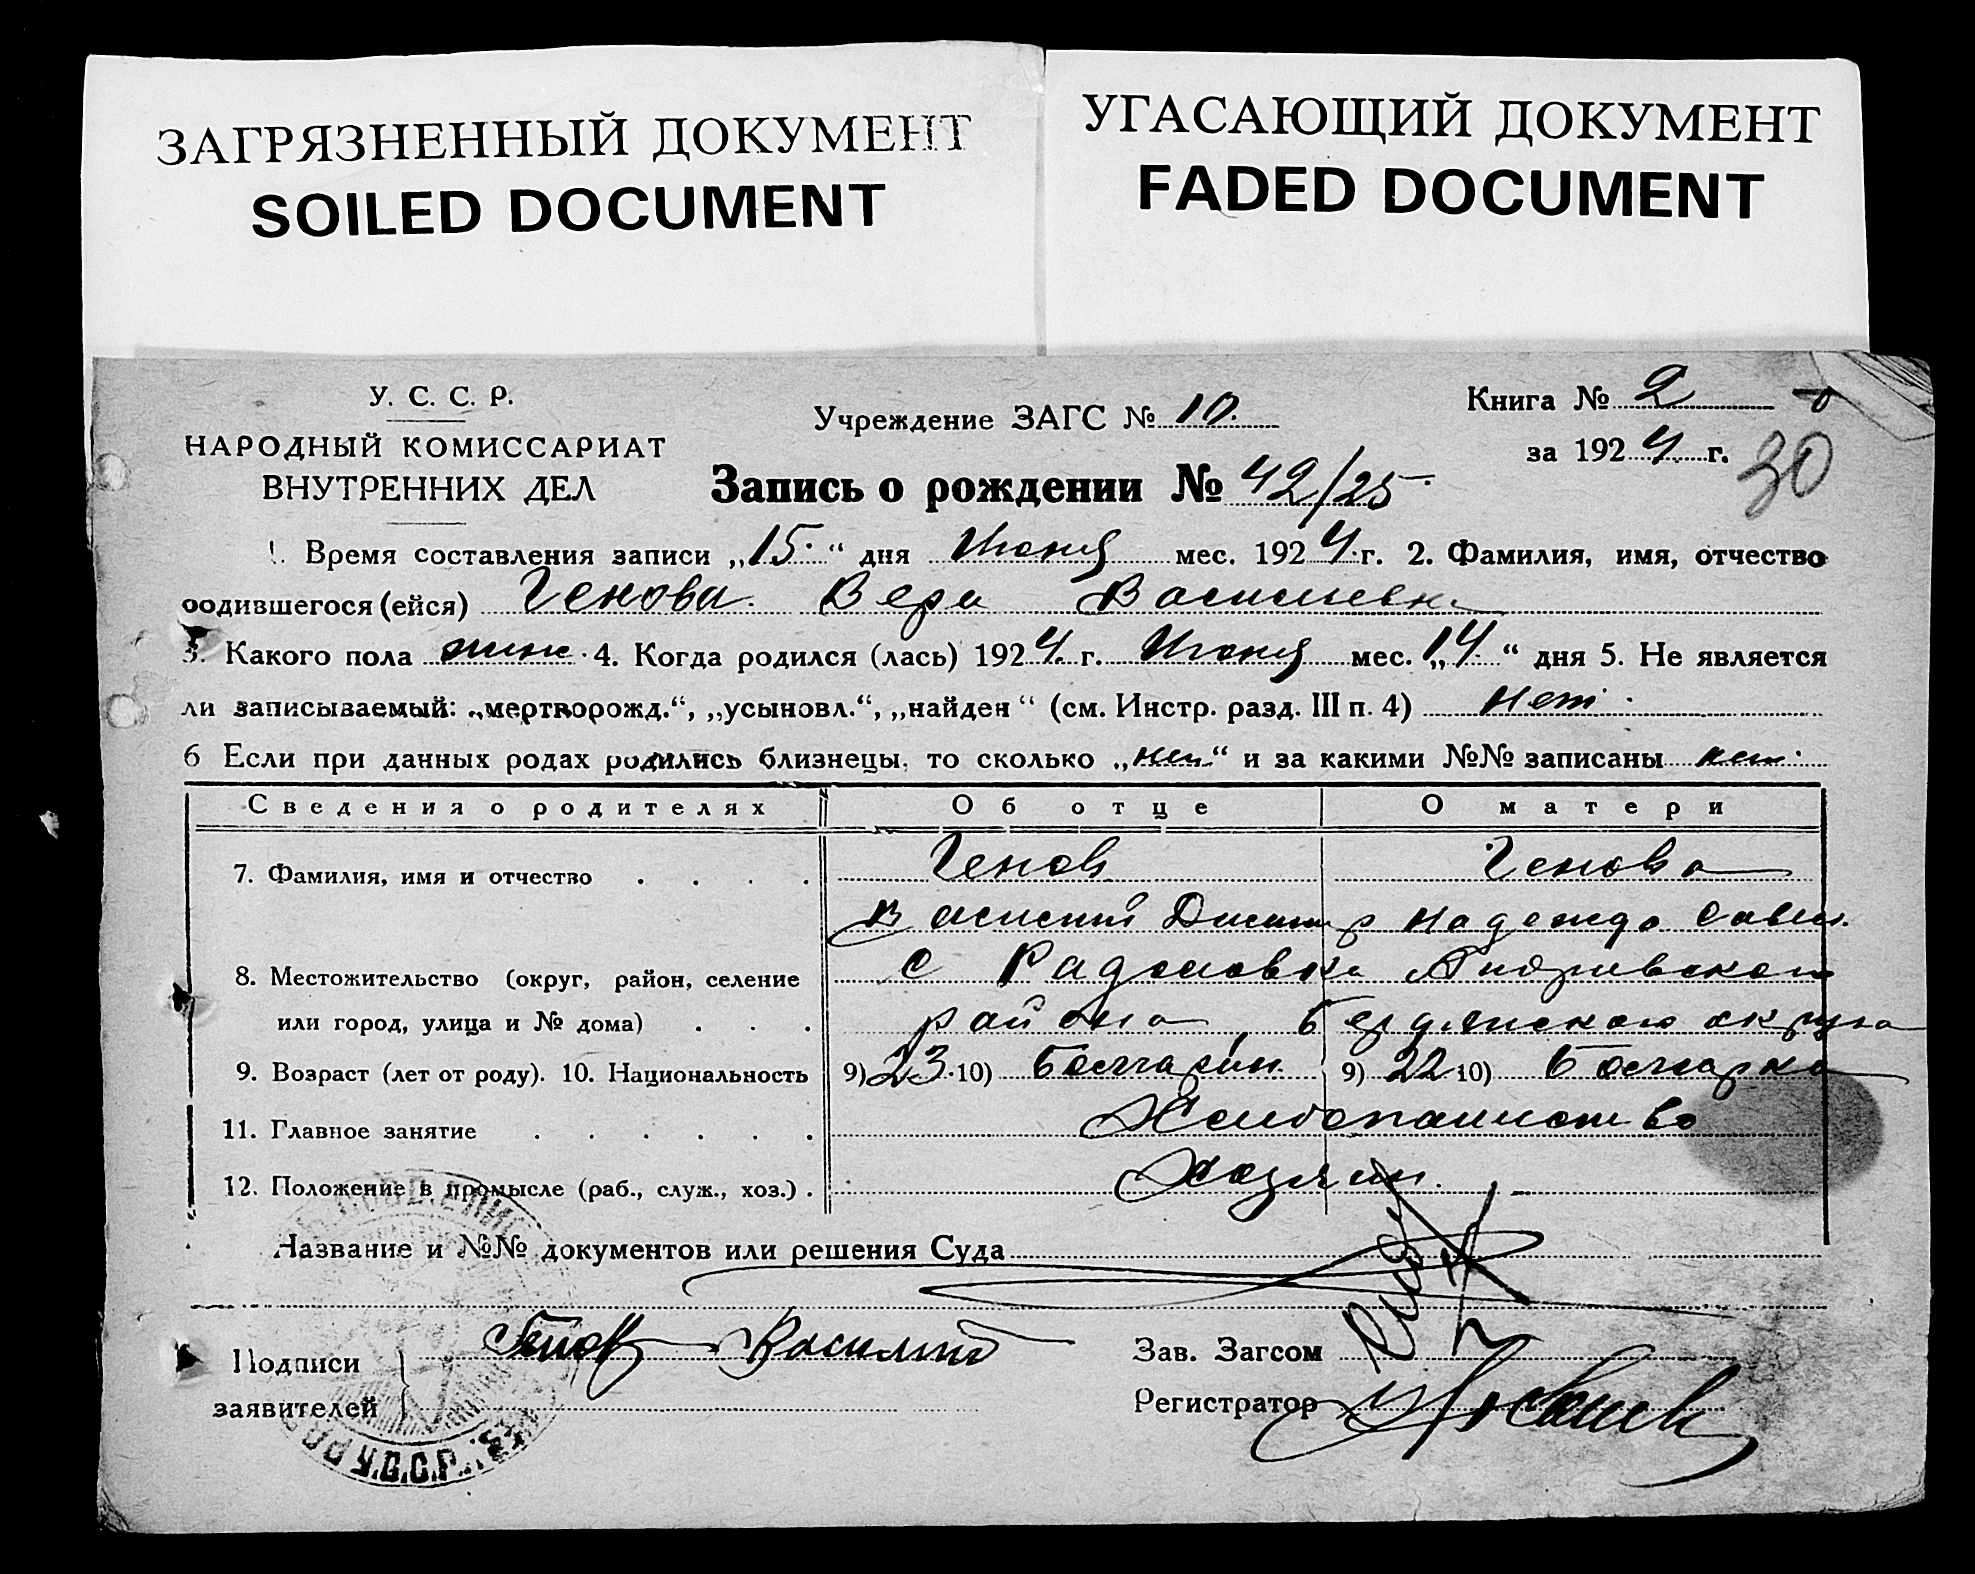 ЗАГРЯЗНЕННЫЙ ДОКУМЕНТ
SOILED DOCUMENT
УГАСАЮЩИЙ ДОКУМЕНТ
FADED DOCUMENT
У. С. С. Р.
НАРОДНЫЙ КОМИССАРИАТ
ВНУТРЕННИХ ДЕЛ
Учреждение ЗАГС № 10.
Книга № 2
за 1924 г.
30
Запись о рождении № 42/25
1. Время составления записи „15" дня Июня мес. 1924 г. 2. Фамилия, имя, отчество
родившегося (ейся) Генова Вера Васильевна
3. Какого пола жин 4. Когда родился (лась) 1924 г. Июня мес. „14" дня 5. Не является
ли записываемый: „мертворожд.", „усыновл.", „найден" (см. Инстр. разд. III п. 4) нет
6 Если при данных родах родились близнецы, то сколько „нет" и за какими №№ записаны нет
Сведения о родителях Об отце О матери
7. Фамилия, имя и отчество Генов Генова
Василий Дмитр Надежда Савел.
8. Местожительство (округ, район, селение с Радоловка Андриевского
или город, улица и № дома) района, Бердянского округа
9. Возраст (лет от роду). 10. Национальность 9) 23 10) Болгарин 9) 22 10) Болгарка
11. Главное занятие Хлебопашество
12. Положение в промысле (раб., служ., хоз.) Хозяин.
Название и №№ документов или решения Суда
Подписи Генов Василий
заявителей
Зав. Загсом
Регистратор
У.С.С.Р.